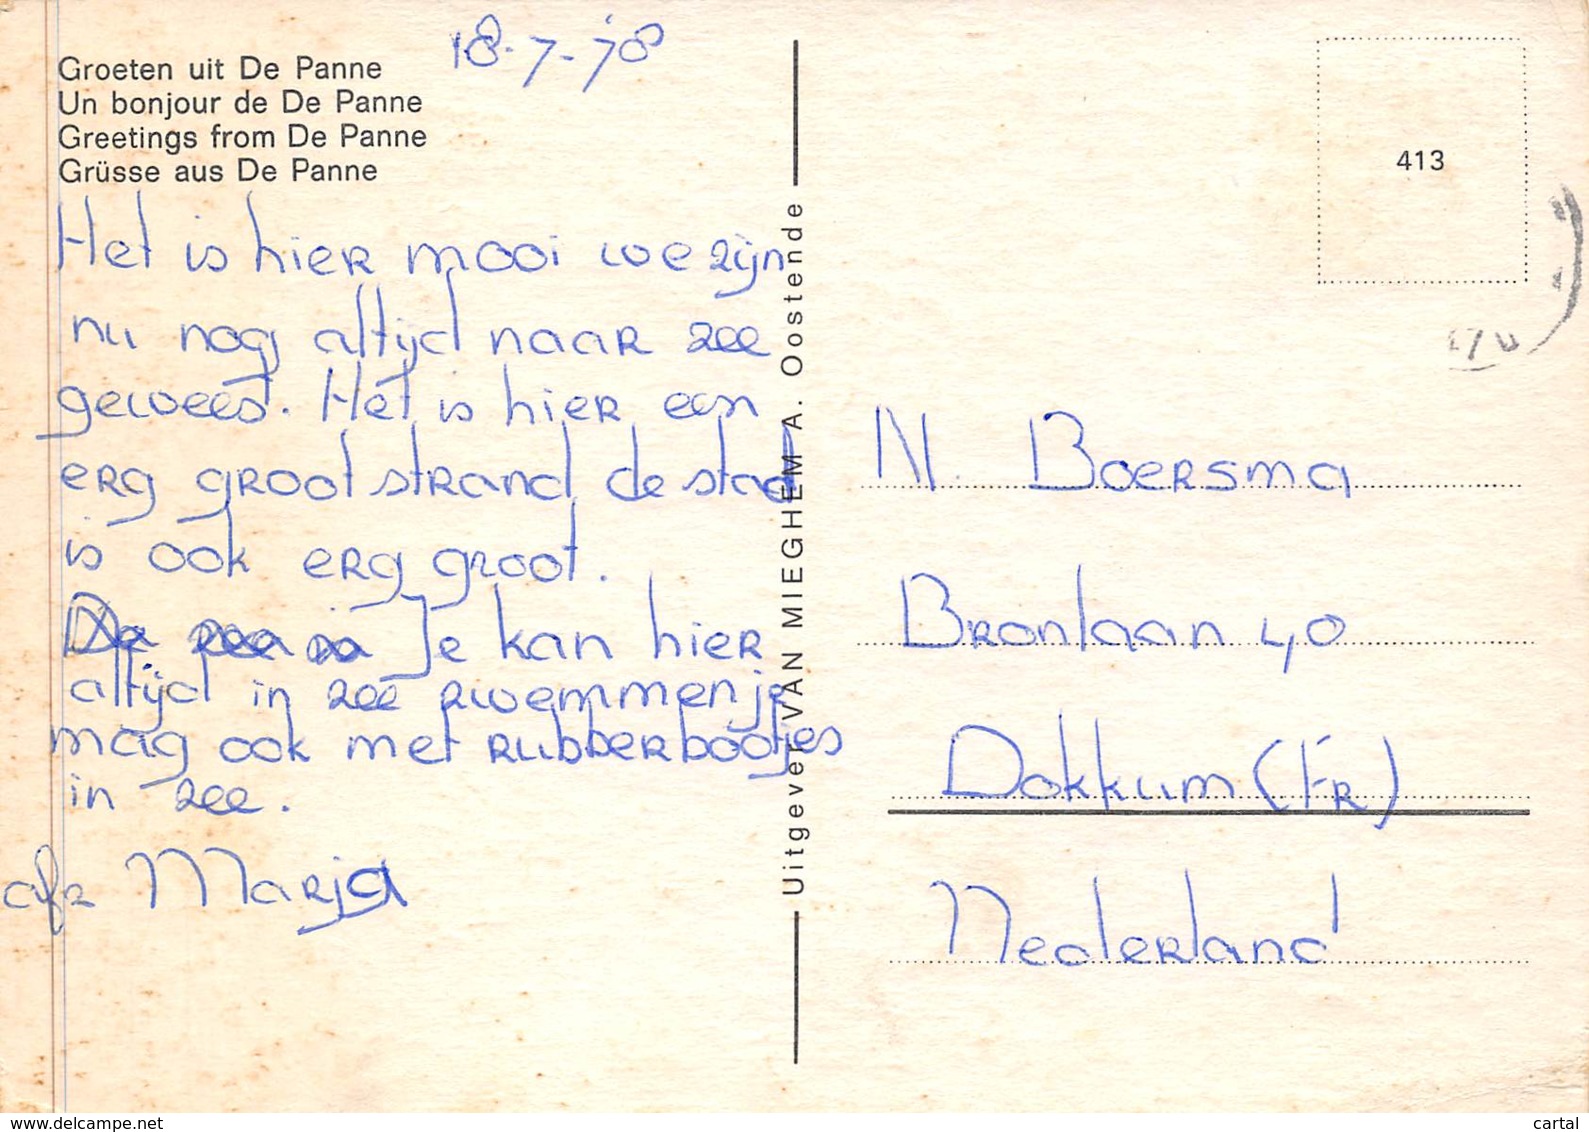 Groeten uit De Panne
Un bonjour de De Panne
Greetings from De Panne
Grüsse aus De Panne
18-7-'78
Het is hier mooi we zijn
nu nog altijd naar zee
geweest. Het is hier een
erg groot strand de stad
is ook erg groot.
Je kan hier
altijd in zee zwemmen je
mag ook met rubberbootjes
in zee.
afz Marja
Uitgever VAN MIEGHEM A. Oostende
413
N. Boersma
Bronlaan 40
Dokkum (Fr)
Nederland
www.delcampe.net
cartal